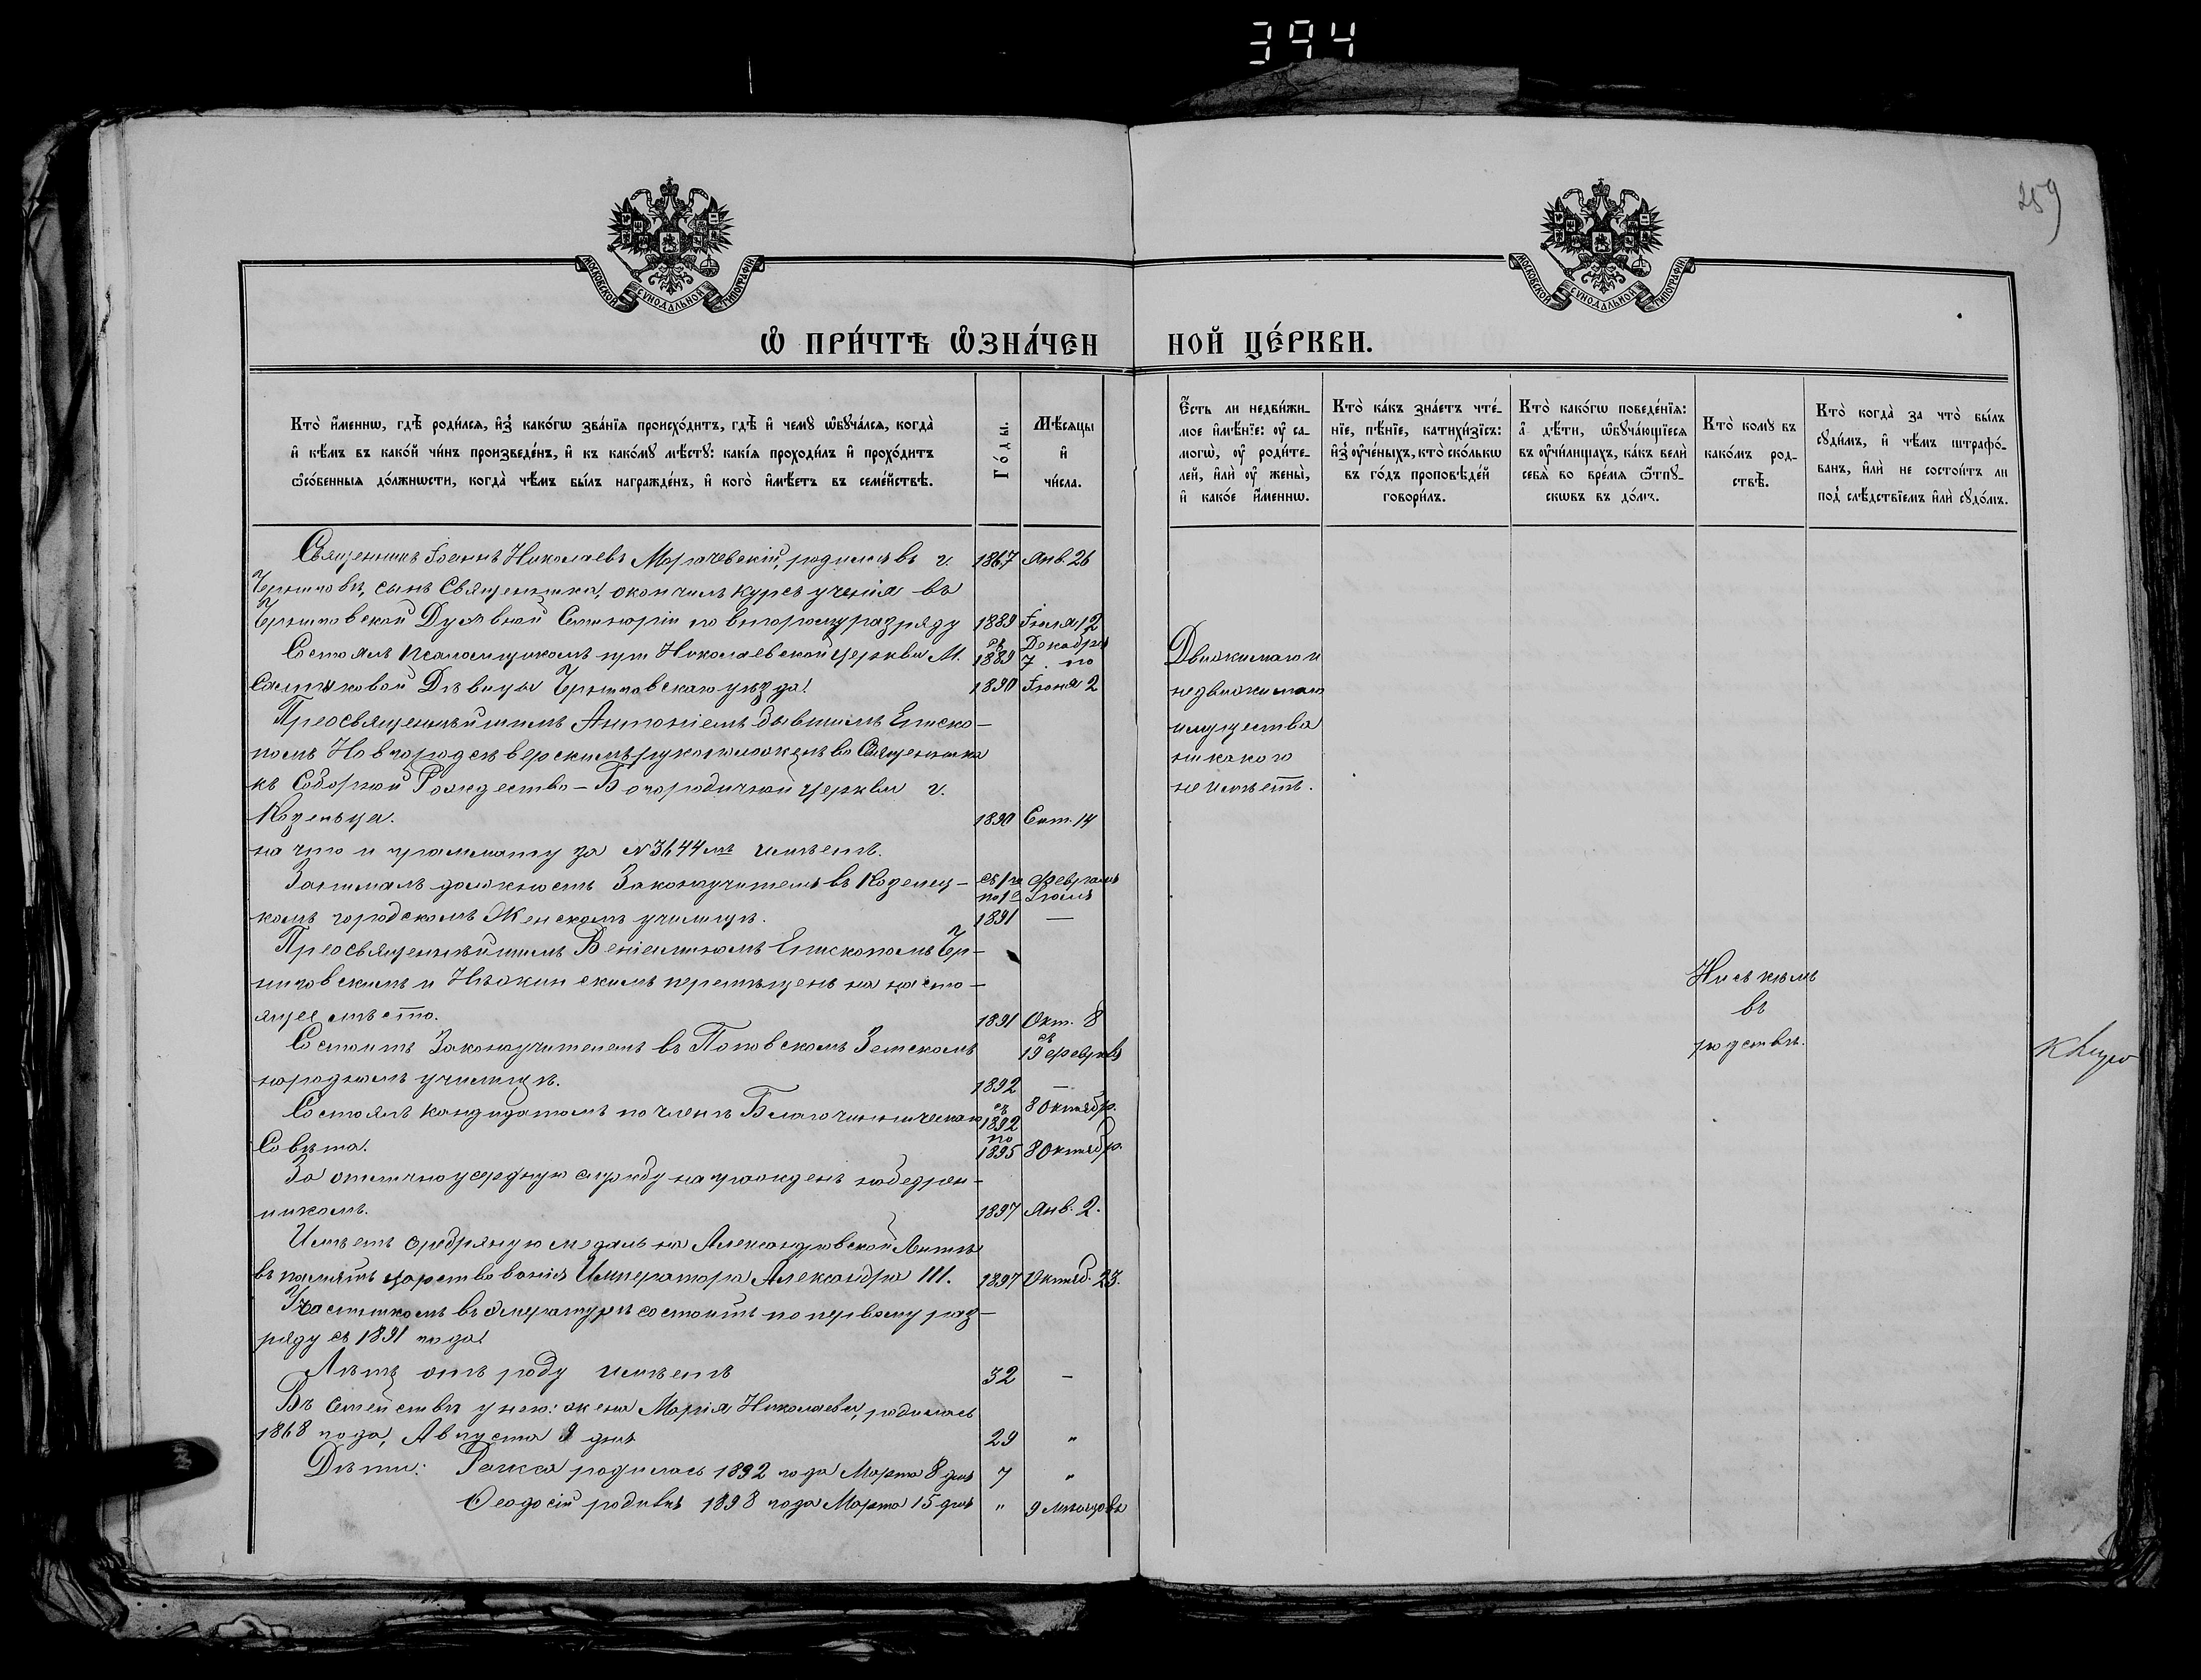 394
259
МОСКОВСКОЙ СѴНОДАЛЬНОЙ ТИПОГРАФІИ
МОСКОВСКОЙ СѴНОДАЛЬНОЙ ТИПОГРАФІИ
Ѽ ПРИ́ЧТѢ ѼЗНА́ЧЕН НОЙ ЦЕ́РКВИ.
Кто̀ и҆́менно, гдѣ̀ роди́лся, и҆з̾ како́гѡ зва́нїя происхо́дитъ, гдѣ̀ и҆ чемꙋ̀ ѡ҆бꙋча́лся, когда̀
и҆ кѣ́мъ въ како́й чи́нъ произведе́нъ, и҆ къ како́мꙋ мѣ́стꙋ: какі́я проходи́лъ и҆ прохо́дитъ
ѻ҆со́бенныя до́лжности, когда̀ чѣ́мъ бы́лъ награжде́нъ, и҆ кого̀ и҆мѣ́етъ въ семе́йствѣ.
Го́ды.
Мѣ́сяцы
и҆
чи́сла.
Е҆́сть ли недви́жи-
мое и҆мѣ́нїе: ᲂу҆ са-
могѡ̀, ᲂу҆ роди́те-
лей, и҆лѝ ᲂу҆ жены̀,
и҆ како́е и҆́менно.
Кто̀ ка́къ зна́етъ чте́-
нїе, пѣ́нїе, катихи́зїсъ:
и҆з̾ ᲂу҆че́ныхъ, кто̀ ско́лькѡ
въ го́дъ проповѣ́дей
говори́лъ.
Кто̀ како́гѡ поведе́нїя:
а҆ дѣ́ти, ѡ҆бꙋча́ющїеся
въ ᲂу҆чи́лищахъ, ка́къ велѝ
себя̀ во вре́мя ѿпꙋ-
сковъ въ до́мъ.
Кто̀ комꙋ̀ въ
како́мъ род-
ствѣ̀.
Кто̀ когда̀ за что̀ бы́лъ
сꙋди́мъ, и҆ чѣ́мъ штрафо́-
ванъ, и҆лѝ не состои́тъ ли
под̾ слѣ́дствїемъ и҆лѝ сꙋдо́мъ.
Священникъ Іоаннъ Николаевъ Морачевскій, родился въ г. 1867 Янв. 26
Черниговѣ, сынъ Священника, окончилъ курсъ ученія въ
Черниговской Духовной Семинаріи по второму разряду 1889 Іюля 12
Состоялъ псаломщикомъ при Николаевской церкви М. съ 1889 Декабря 7 по
Салтыковой Дѣвицы Черниговскаго уѣзда 1890 Іюня 2
Преосвященнѣйшимъ Антоніемъ бывшимъ Еписко-
помъ Новгородсѣверскимъ рукоположенъ во Священника
къ Соборной Рождество-Богородичной церкви г.
Козельца. 1890 Сент. 14
на что и граммату за №3644мъ имѣетъ.
Занималъ должность Законоучителя въ Козелец- съ 1го Февраля
по 1е Іюля
комъ городскомъ Женскомъ училищѣ. 1891 —
Преосвященнѣйшимъ Веніаминомъ Епископомъ Чер-
ниговскимъ и Нѣжинскимъ перемѣщенъ на насто-
ящее мѣсто. 1891 Окт. 8
Состоитъ Законоучителемъ въ Поповскомъ Земскомъ съ 19 Февраля
народномъ училищѣ. 1892 —
Состоялъ кандидатомъ по членѣ Благочинническаго съ 1892 8 Октябр.
Совѣта. по 1895 8 Октябр.
За отлично усердную службу награжденъ набедрен-
никомъ. 1897 Янв. 2.
Имѣетъ серебряную медаль на Александровской Лентѣ
въ память царствованія Императора Александра III. 1897 Октяб. 23.
Участникомъ въ эмеритурѣ состоитъ по первому раз-
ряду съ 1891 года
Лѣтъ отъ роду имѣетъ 32 —
Въ семействѣ у него: жена Марія Николаева, родилась
1868 года, Августа 9 дня 29 "
Дѣти: родилась 1892 года Марта 8 дня 7 "
Ѳеодосій родился 1898 года Марта 15 дня " 9 мѣсяцовъ
Движимаго и
недвижимаго
имущества
никакого
не имѣетъ.
Ни съ кѣмъ
въ
родствѣ.